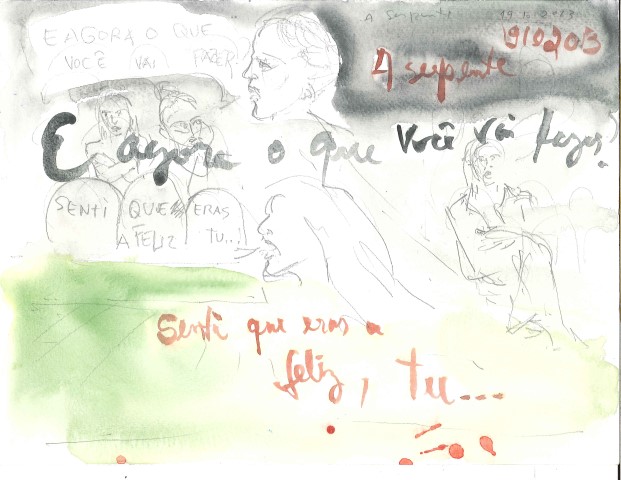 A Serpente
19/02013
A serpente
E AGORA O QUE
VOCÊ VAI FAZER?
E agora o que você vai fazer?
SENTI QUE ERAS
A FELIZ TU...!
Senti que eras a
feliz, tu...